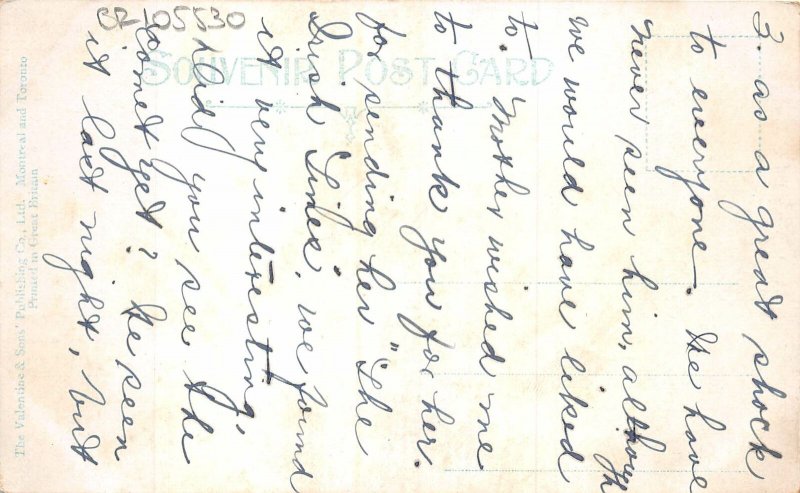 3. as a great shock
to everyone. He have
never seen him, although
we would have liked
to. Mother wished me
to thank you for her.
for sending her "The
Irish Times", we found
it very interesting,
Did you see the
comet yet? He seen
it last night, but
SOUVENIR POST CARD
CR-05530
The Valentine & Sons' Publishing Co., Ltd. Montreal and Toronto
Printed in Great Britain